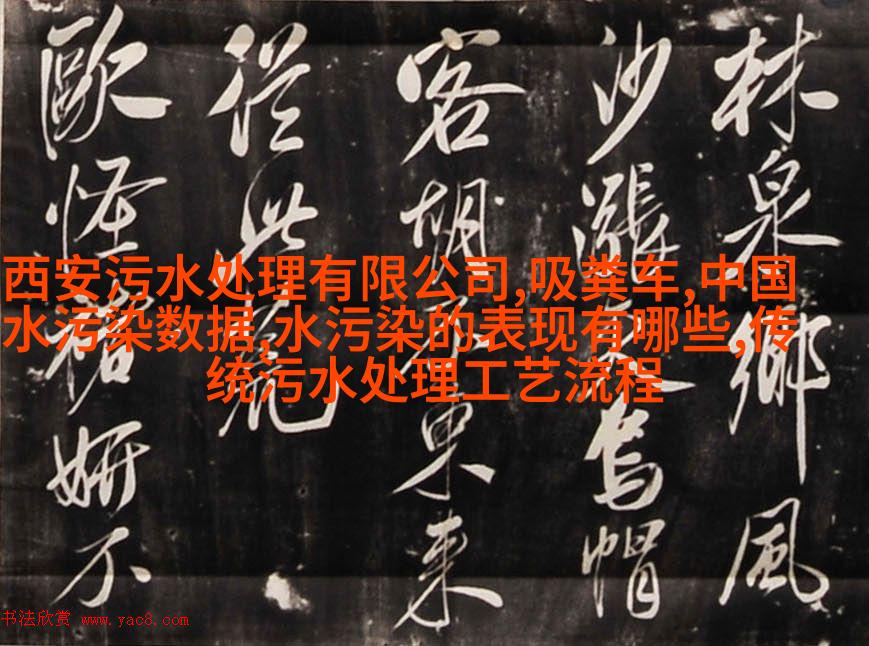 西安污水处理有限公司,吸粪车,中国
水污染数据,水污染的表现有哪些,传
统污水处理工艺流程
林泉鄉風
沙漲烏帽
客胡来
從此
歐怪褚妍不
书法欣赏 www.yac8.com